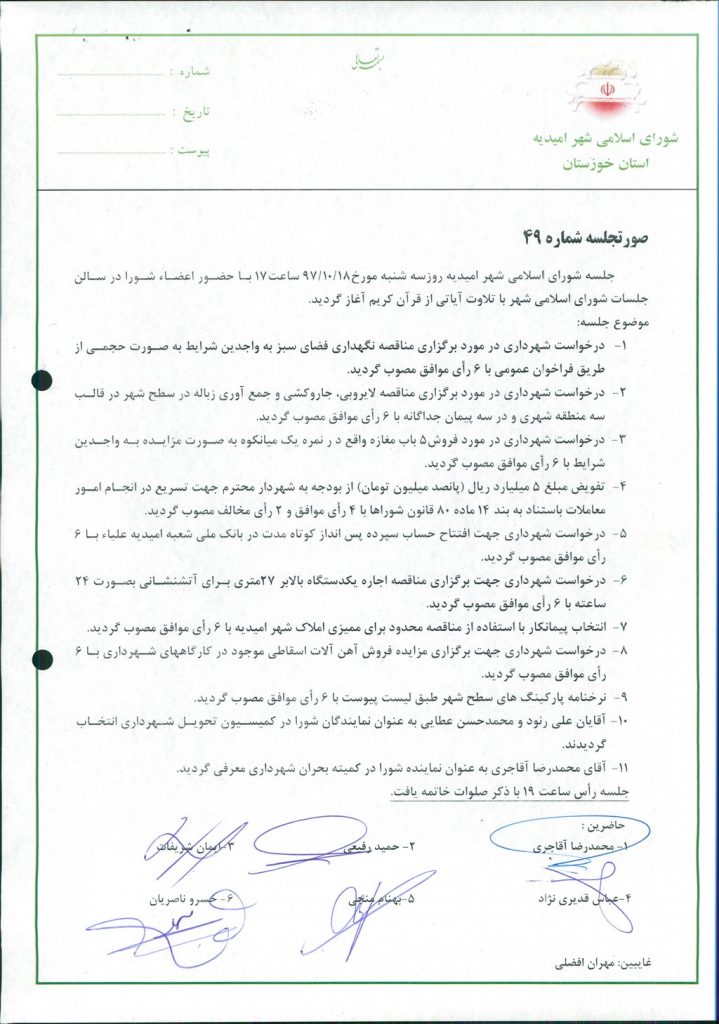 بسمه تعالی
شورای اسلامی شهر امیدیه
استان خوزستان
شماره :
تاریخ :
پیوست :
صورتجلسه شماره ۴۹
جلسه شورای اسلامی شهر امیدیه روزسه شنبه مورخ۹۷/۱۰/۱۸ ساعت۱۷ با حضور اعضاء شورا در سالن
جلسات شورای اسلامی شهر با تلاوت آیاتی از قرآن کریم آغاز گردید.
موضوع جلسه:
۱- درخواست شهرداری در مورد برگزاری مناقصه نگهداری فضای سبز به واجدین شرایط به صورت حجمی از
طریق فراخوان عمومی با ۶ رأی موافق مصوب گردید.
۲- درخواست شهرداری در مورد برگزاری مناقصه لایروبی، جاروکشی و جمع آوری زباله در سطح شهر در قالب
سه منطقه شهری و در سه پیمان جداگانه با ۶ رأی موافق مصوب گردید.
۳- درخواست شهرداری در مورد فروش۵ باب مغازه واقع د ر نمره یک میانکوه به صورت مزایده به واجدین
شرایط با ۶ رأی موافق مصوب گردید.
۴- تفویض مبلغ ۵ میلیارد ریال (پانصد میلیون تومان) از بودجه به شهردار محترم جهت تسریع در انجام امور
معاملات باستناد به بند ۱۴ ماده ۸۰ قانون شوراها با ۴ رأی موافق و ۲ رأی مخالف مصوب گردید.
۵- درخواست شهرداری جهت افتتاح حساب سپرده پس انداز کوتاه مدت در بانک ملی شعبه امیدیه علیاء با ۶
رأی موافق مصوب گردید.
۶- درخواست شهرداری جهت برگزاری مناقصه اجاره یکدستگاه بالابر ۲۷متری برای آتشنشانی بصورت ۲۴
ساعته با ۶ رأی موافق مصوب گردید.
۷- انتخاب پیمانکار با استفاده از مناقصه محدود برای ممیزی املاک شهر امیدیه با ۶ رأی موافق مصوب گردید.
۸- درخواست شهرداری جهت برگزاری مزایده فروش آهن آلات اسقاطی موجود در کارگاههای شهرداری با ۶
رأی موافق مصوب گردید.
۹- نرخنامه پارکینگ های سطح شهر طبق لیست پیوست با ۶ رأی موافق مصوب گردید.
۱۰- آقایان علی رنود و محمدحسن عطایی به عنوان نمایندگان شورا در کمیسیون تحویل شهرداری انتخاب
گردیدند.
۱۱- آقای محمدرضا آقاجری به عنوان نماینده شورا در کمیته بحران شهرداری معرفی گردید.
جلسه رأس ساعت ۱۹ با ذکر صلوات خاتمه یافت.
حاضرین :
۱- محمدرضا آقاجری ۲- حمید رفیعی ۳- ایمان شریفات
۴- عباس قدیری نژاد ۵- بهنام منجی ۶- خسرو ناصریان
غایبین: مهران افضلی